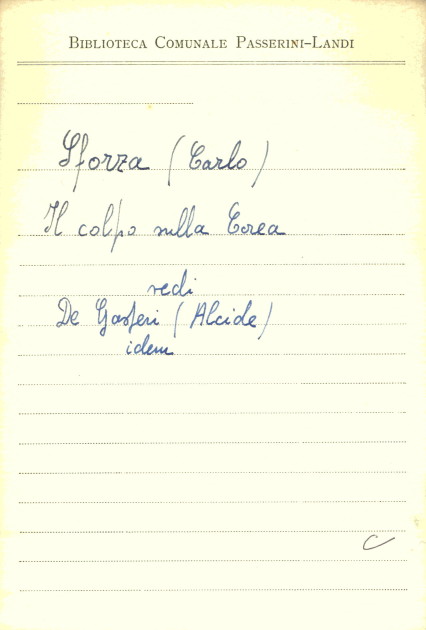 BIBLIOTECA COMUNALE PASSERINI-LANDI
Sforza (Carlo)
Il colpo sulla Corea
vedi
De Gasperi (Alcide)
idem
C